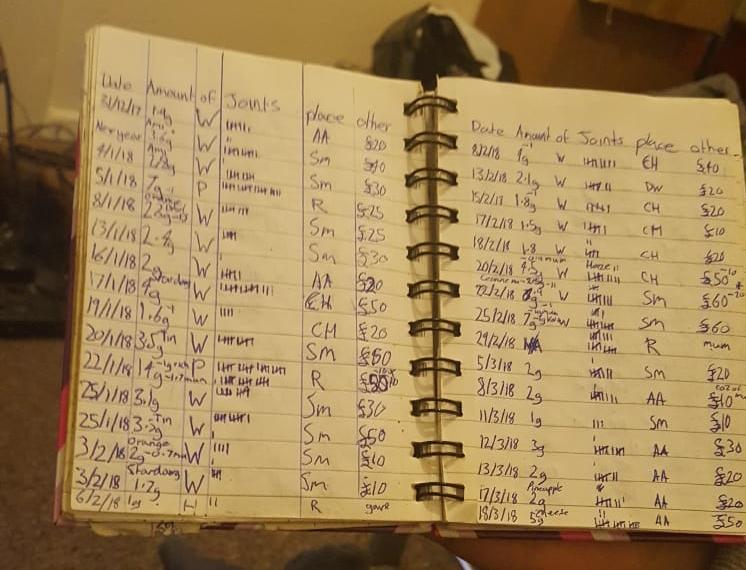 Date Amount of Joints place other
31/12/17 1.4g W AA £20
New year 3.6g W Sm £40
4/1/18 2.8g W Sm £30
5/1/18 7g P R £25
8/1/18 W Sm £25
13/1/18 2.4g W Sm £30
16/1/18 2g W AA £20
17/1/18 Stardawg 4g W CH £50
19/1/18 1.6g W CH £20
20/1/18 3.5g W Sm
22/1/18 14g P R
25/1/18 3.1g W Sm £30
25/1/18 3.2g W Sm £50
3/2/18 orange 2g W Sm £10
3/2/18 Stardawg 1.2g W Sm £10
6/2/18 1g H R gave
Date Amount of Joints place other
8/2/18 1g W CH £40
13/2/18 2.1g W DW £20
15/2/18 1.8g W CH £20
17/2/18 1.5g W CM £10
18/2/18 1.8 W CH £20
20/2/18 4.5 W Haze CH £50
22/2/18 W Sm £60
25/2/18 7g W Sm £60
29/2/18 R mum
5/3/18 2g Sm £20
8/3/18 2g AA £10
11/3/18 1g Sm £10
12/3/18 3g AA £30
13/3/18 2g AA £20
17/3/18 Pineapple 2g AA £20
18/3/18 5g cheese AA £50